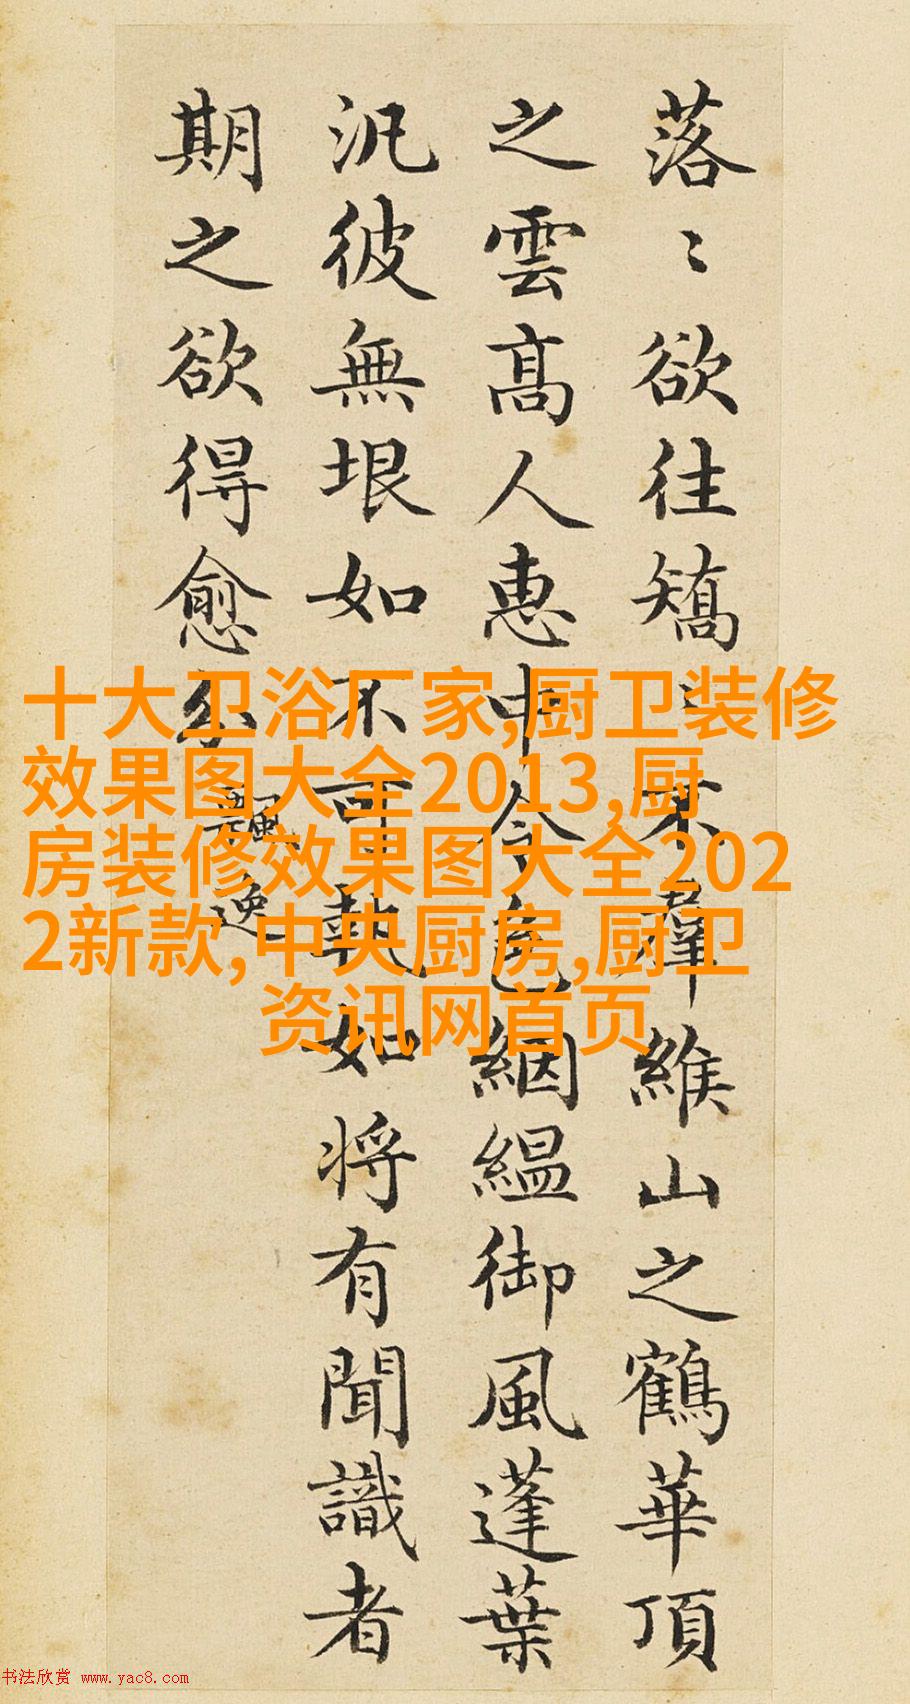 落〻欲往矯〻不羣緱山之鶴華頂
之雲髙人惠中令色絪縕御風蓬葉
汎彼無垠如不可執如将有聞識者
期之欲得愈分
飄逸
十大卫浴厂家,厨卫装修
效果图大全2013,厨
房装修效果图大全202
2新款,中央厨房,厨卫
资讯网首页
书法欣赏 www.yac8.com